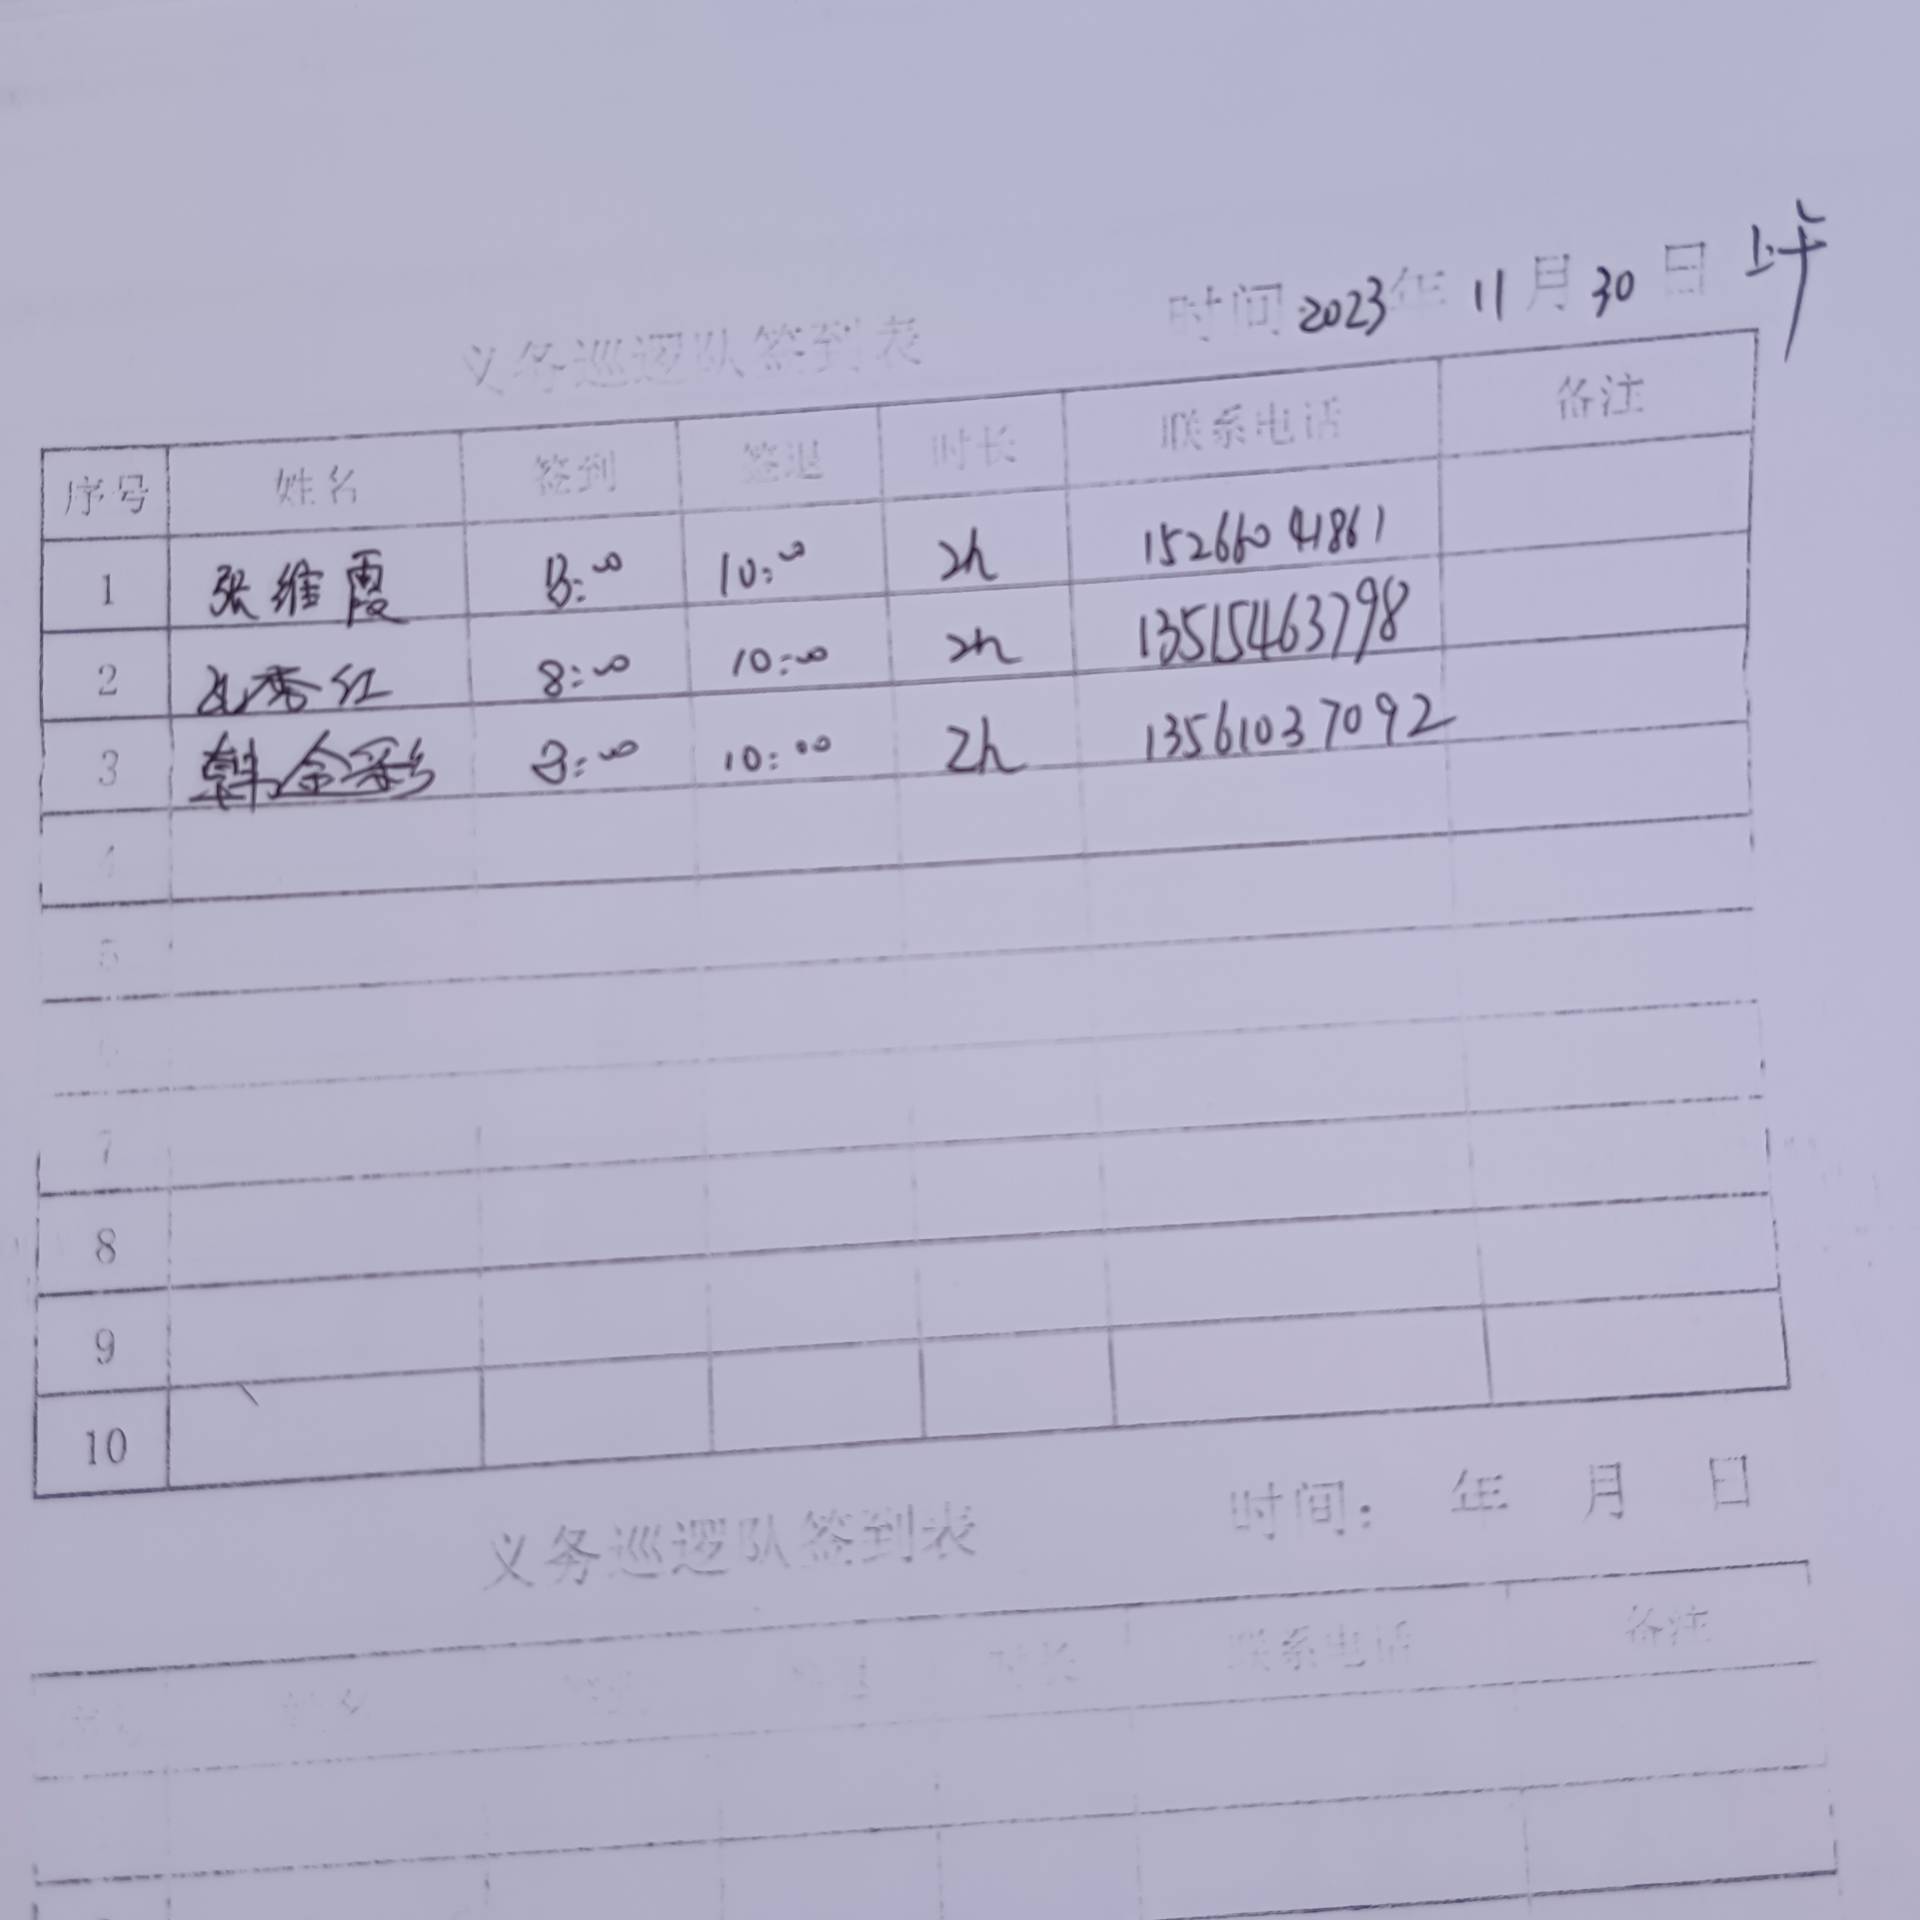 时间 2023年 11月30日 上午
义务巡逻队签到表
序号 姓名 签到 签退 时长 联系电话 备注
1 张维霞 8:00 10:00 2h 15266041861
2 孔秀红 8:00 10:00 2h 13515463798
3 韩金彩 8:00 10:00 2h 13561037092
4
5
6
7
8
9
10
义务巡逻队签到表 时间: 年 月 日
姓名 时长 联系电话 备注